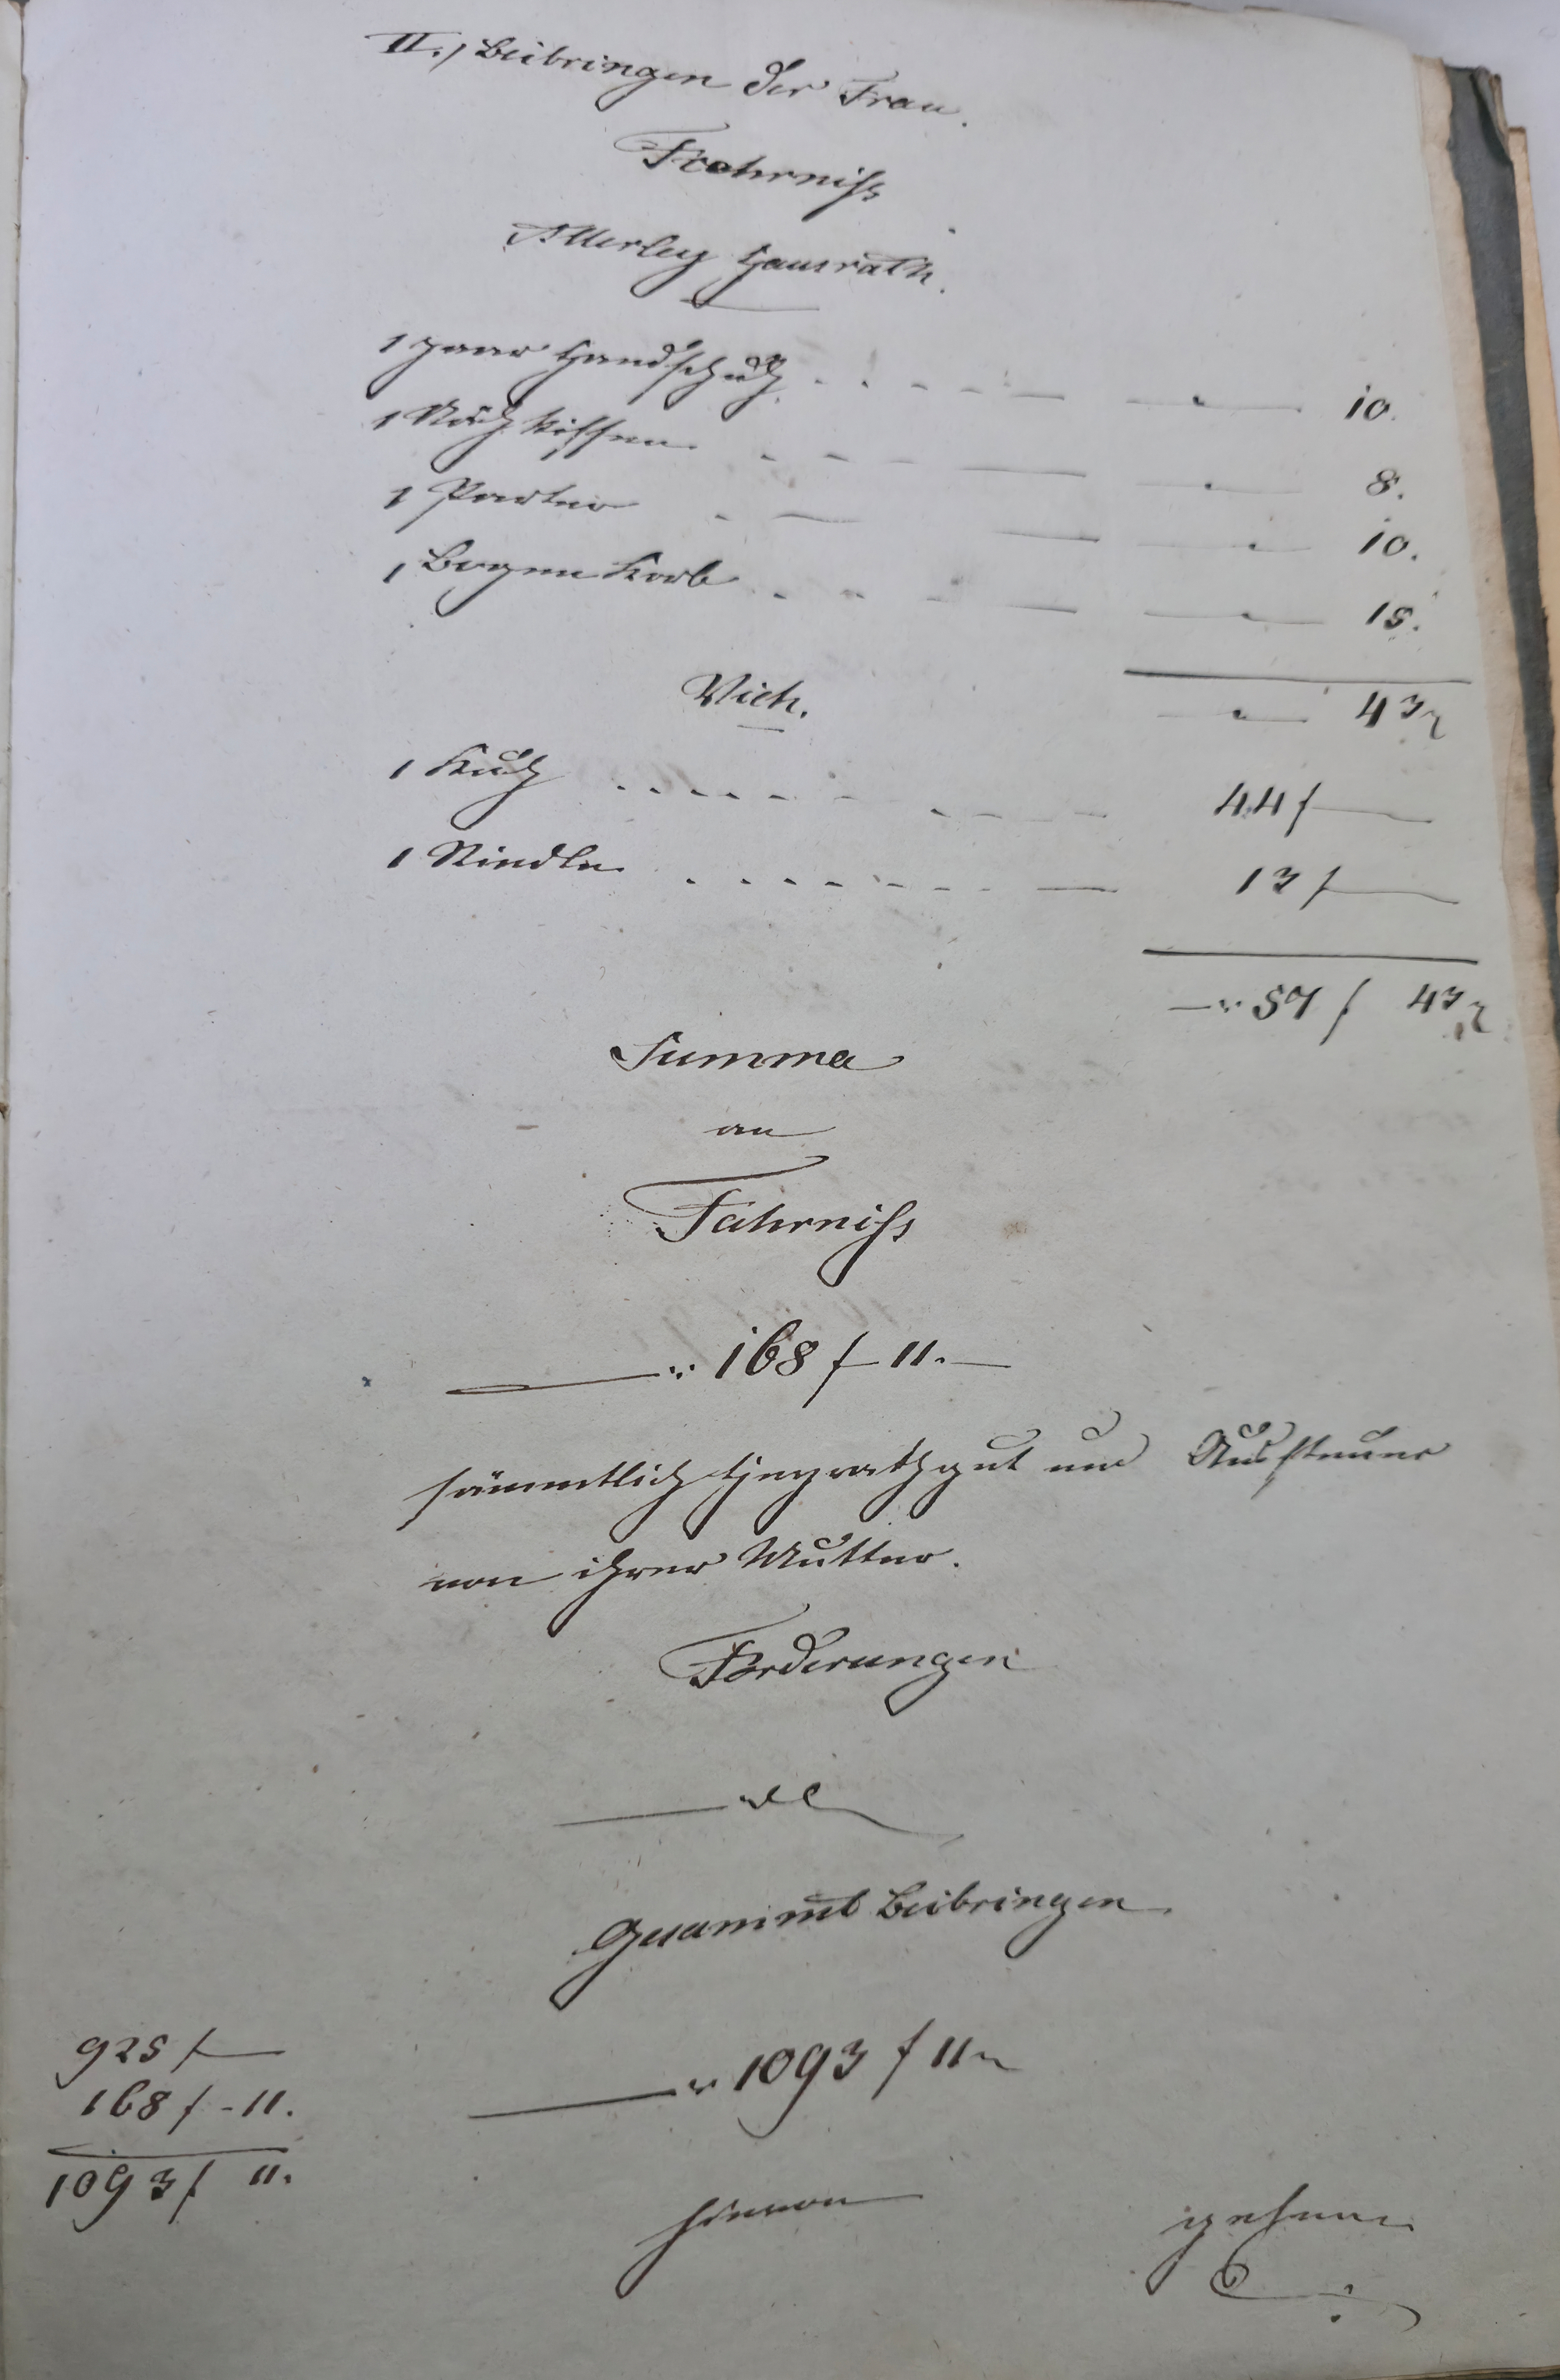 II., Beibringen der Frau.
Fahrniß
Allerley Hausrath.
1 paar Handschuh . . . . — — " — 10.
1 Näh Kissen . . . — — " — 8.
1 — — " — 10.
1 Bogen Korb . . . — — " — 15.
— " — 43 x
Vieh.
1 Kuh . . . . . . . . . 44 f —
1 Rindle . . . . . . . — 13 f —
—" 57 f 43 x
Summa
an
Fahrniß
—" 168 f 11. —
sämmtlich Heyrathgut und Aussteuer
von ihrer Mutter.
Forderungen
Gesammt Beibringen
925 f —
—" 1093 f 11 x
168 f - 11.
1093 f 11.
hievon